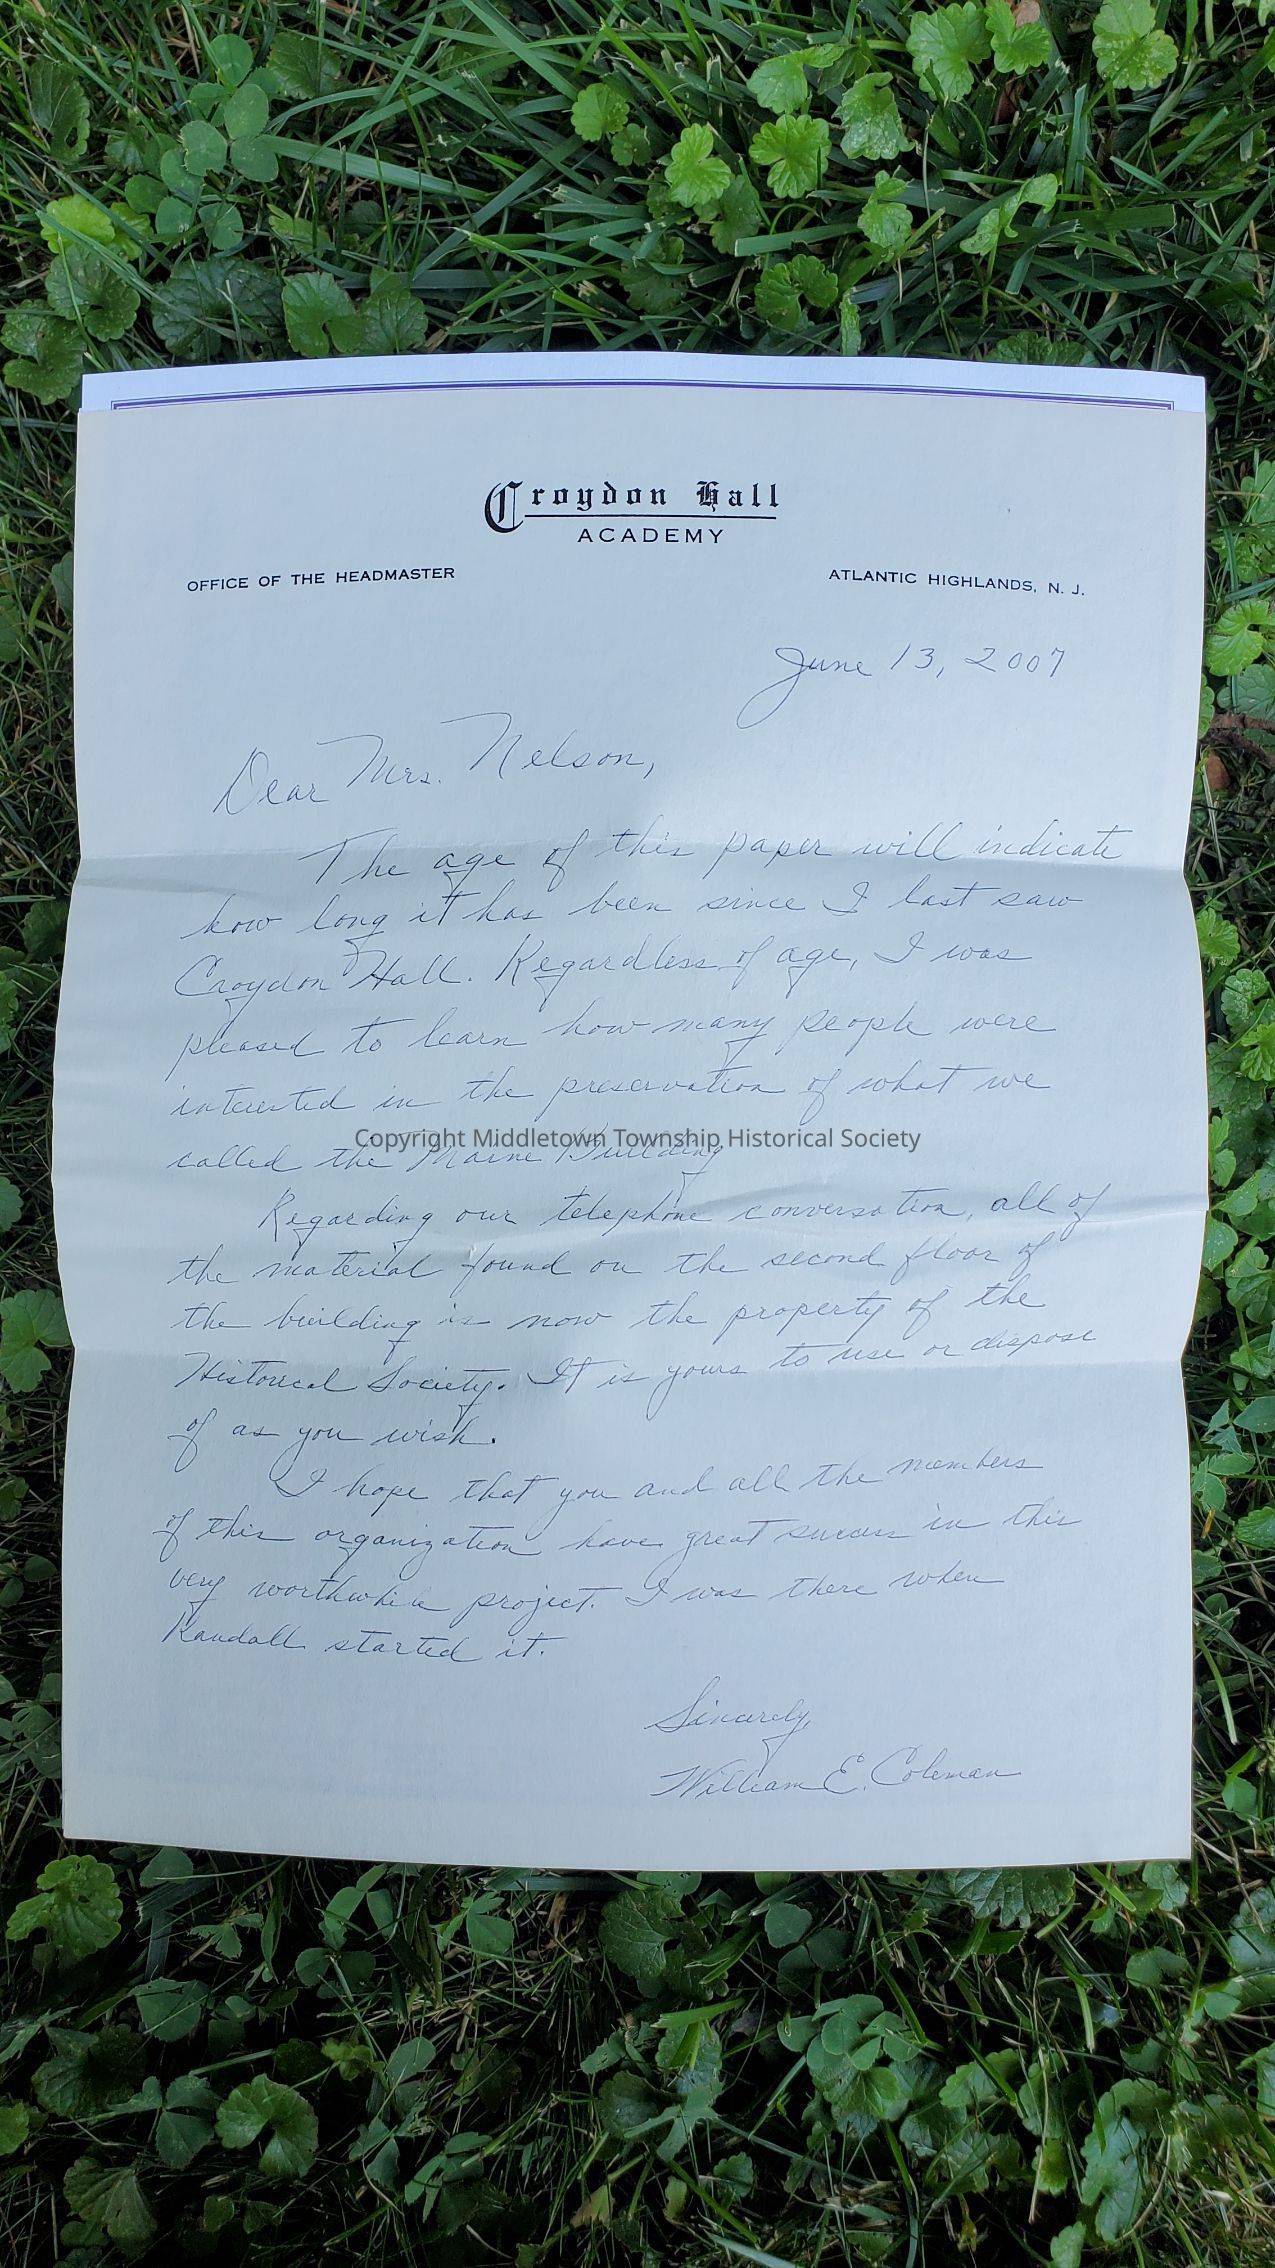 Croydon Hall
ACADEMY
OFFICE OF THE HEADMASTER
ATLANTIC HIGHLANDS, N. J.
June 13, 2007
Dear Mrs. Nelson,
The age of this paper will indicate
how long it has been since I last saw
Croydon Hall. Regardless of age, I was
pleased to learn how many people were
interested in the preservation of what we
called the Maine Building
Copyright Middletown Township Historical Society
Regarding our telephone conversation, all of
the material found on the second floor of
the building is now the property of the
Historical Society. It is yours to use or dispose
of as you wish.
I hope that you and all the members
of this organization have great success in this
very worthwhile project. I was there when
Randall started it.
Sincerely,
William E. Coleman